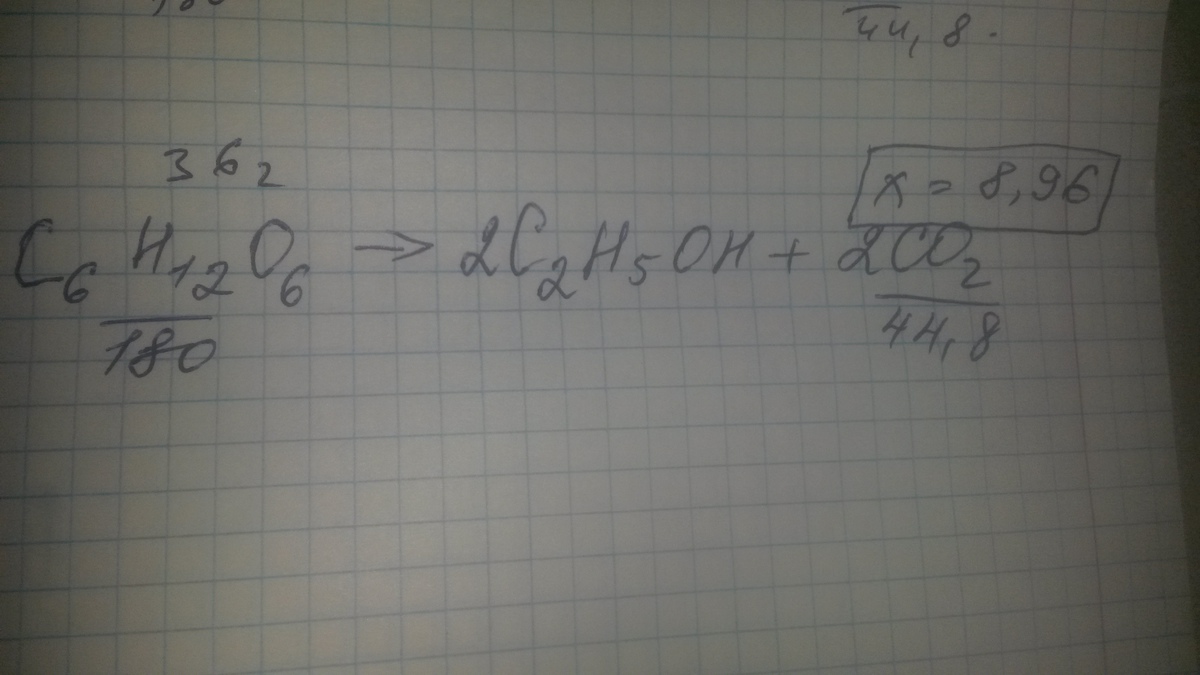 44, 8.
36г
x = 8,96
C₆H₁₂O₆ → 2C₂H₅OH + 2CO₂
180
44,8